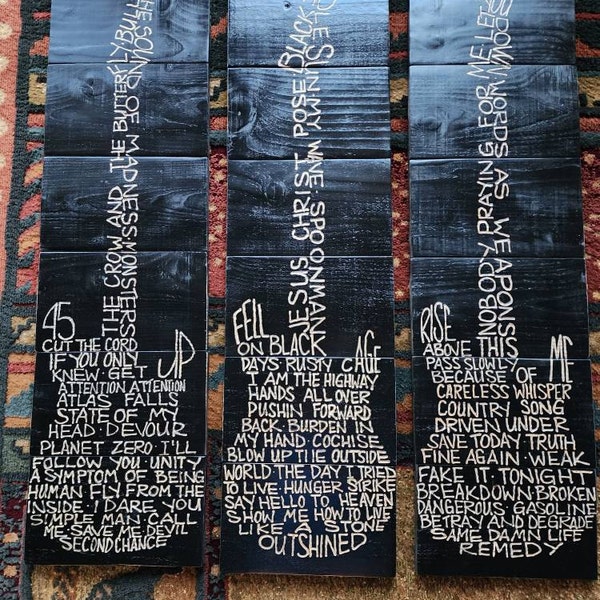 THE SOUND OF MADNESS MONSTERS
THE CROW AND THE BUTTERFLY BULLY
45
CUT THE CORD
IF YOU ONLY
KNEW GET UP
ATTENTION ATTENTION
ATLAS FALLS
STATE OF MY
HEAD DEVOUR
PLANET ZERO I'LL
FOLLOW YOU UNITY
A SYMPTOM OF BEING
HUMAN FLY FROM THE
INSIDE I DARE YOU
SIMPLE MAN CALL
ME SAVE ME DEVIL
SECOND CHANCE
HOLE SUN MY WINE SPOONMAN
JESUS CHRIST POSE BLACK
FELL
ON BLACK
DAYS RUSTY CAGE
I AM THE HIGHWAY
HANDS ALL OVER
PUSHIN FORWARD
BACK BURDEN IN
MY HAND COCHISE
BLOW UP THE OUTSIDE
WORLD THE DAY I TRIED
TO LIVE HUNGER STRIKE
SAY HELLO TO HEAVEN
SHOW ME HOW TO LIVE
LIKE A STONE
OUTSHINED
DOWN WORDS AS WEAPONS
NOBODY PRAYING FOR ME
RISE
ABOVE THIS
PASS SLOWLY ME
BECAUSE OF
CARELESS WHISPER
COUNTRY SONG
DRIVEN UNDER
SAVE TODAY TRUTH
FINE AGAIN WEAK
FAKE IT TONIGHT
BREAKDOWN BROKEN
DANGEROUS GASOLINE
BETRAY AND DEGRADE
SAME DAMN LIFE
REMEDY